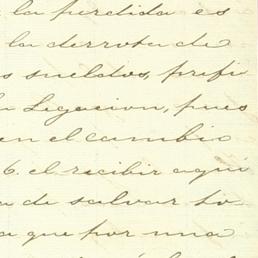 la perdida es
la derrota de
s sueldos, prefi
la Legacion, pues
en el cambio
6. el recibir aqui
a de salvar to
a que por una